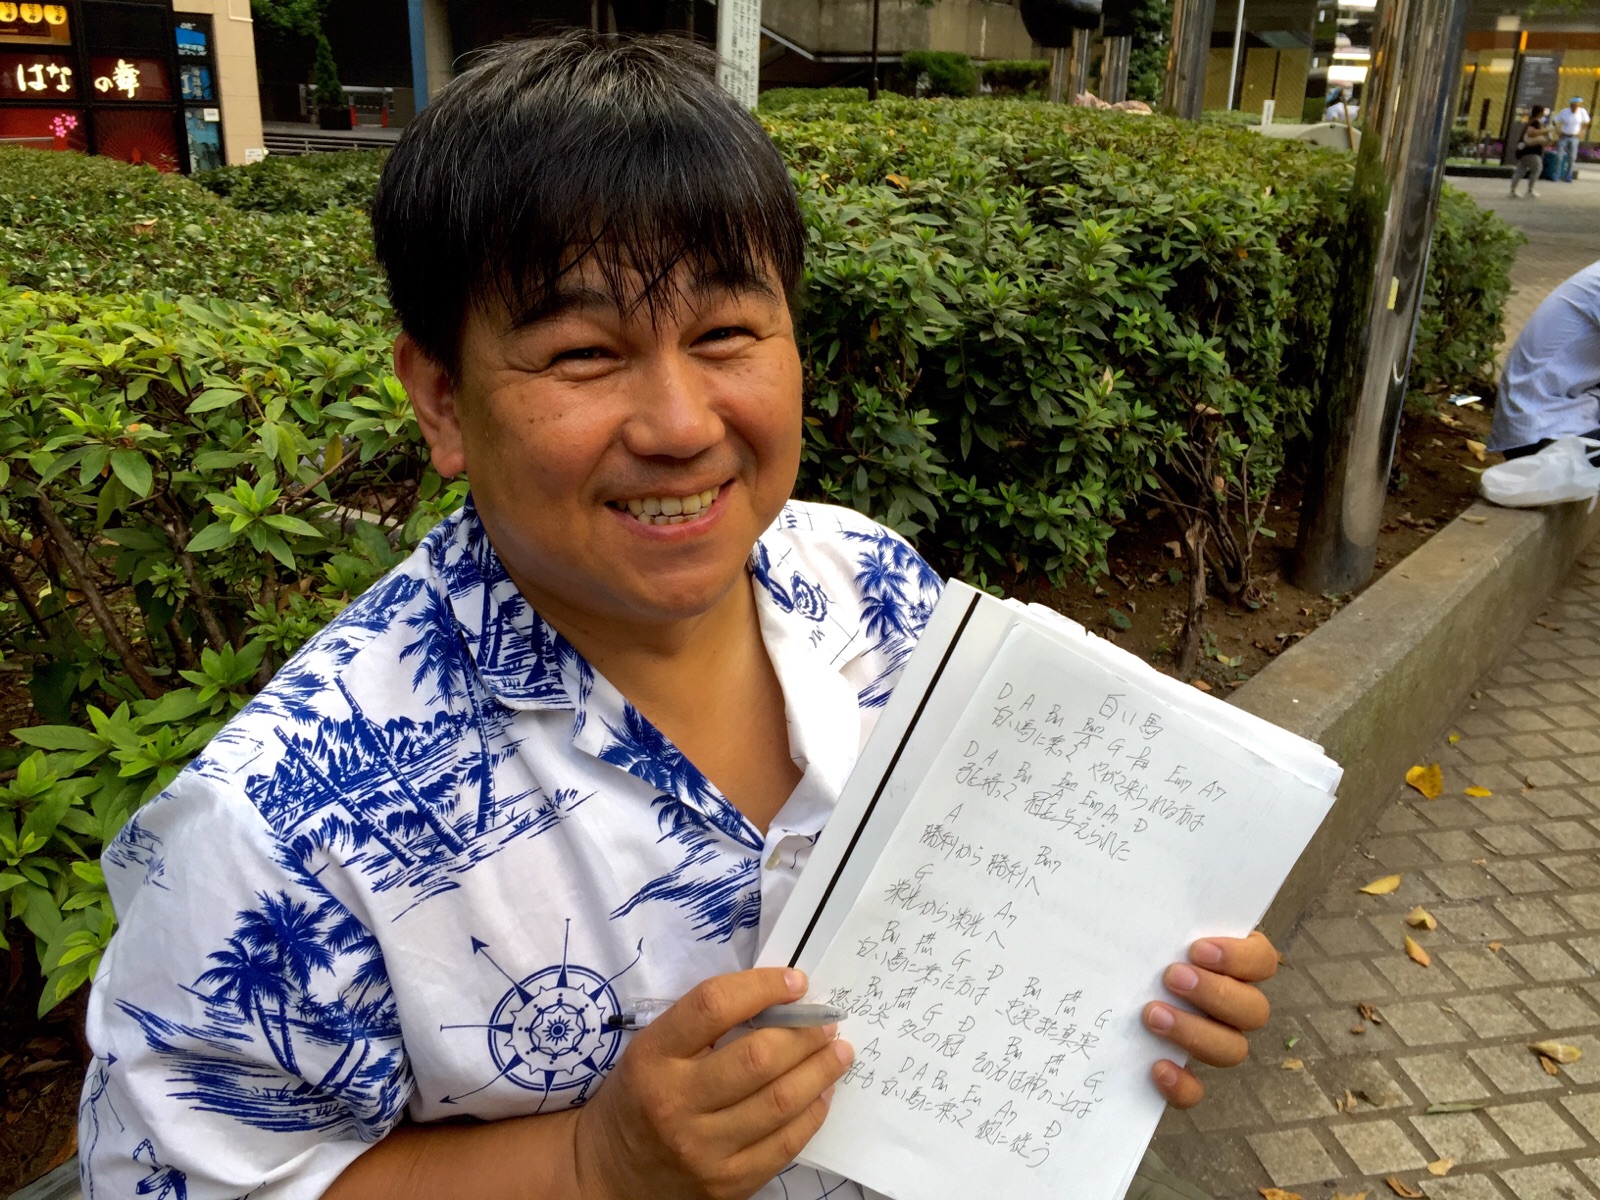 はなの舞
白い馬
D A Bm Bm7/A G D/F# Em7 A7
白い馬に乗って やがて来られる方は
D A Bm Bm7/A Em7 A7 D
弓を持って 冠を与えられた
A Bm7
勝利から 勝利へ
G A7
栄光から 栄光へ
Bm F#m G D Bm F#m G
白い馬に乗った方は 忠実また真実
Bm F#m G D Bm F#m G
燃える炎 多くの冠 その名は神のことば
A7 D A Bm Em A7 D
白い馬に乗って 彼に従う